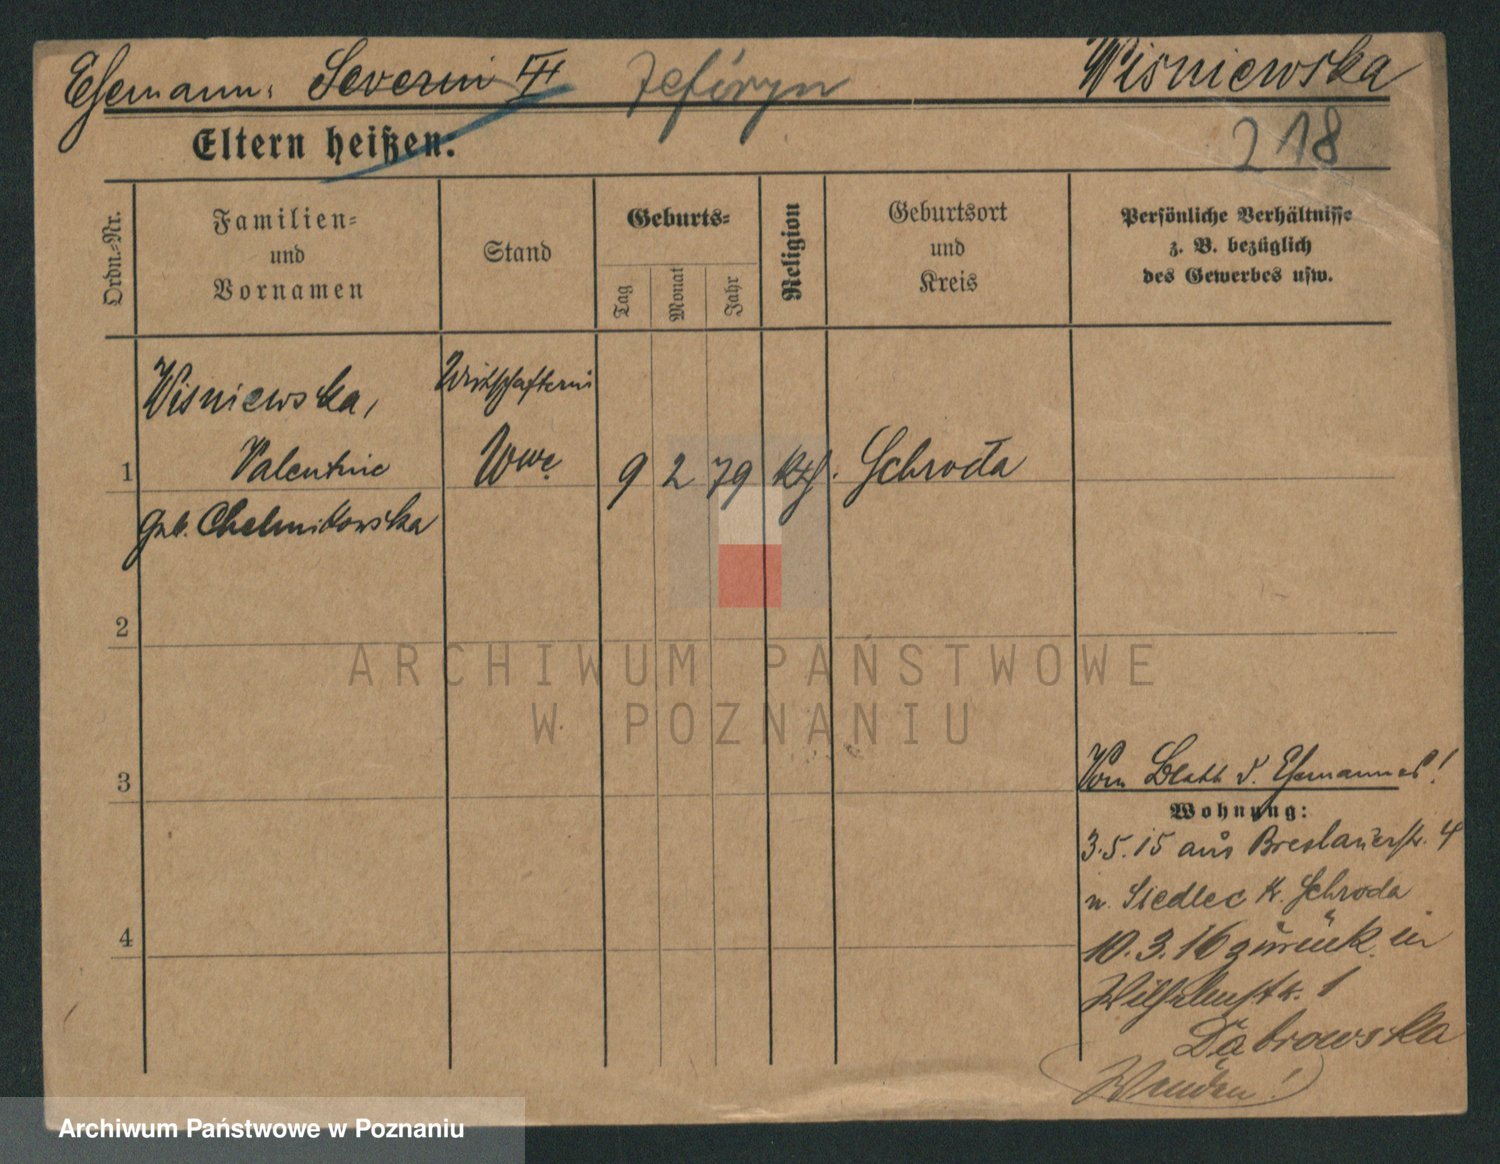 Ehemann: Severin III Zefiryn Wiśniewska
Eltern heißen:
218
Ordn.-Nr.
Familien-
und
Vornamen
Stand
Geburts-
Tag
Monat
Jahr
Religion
Geburtsort
und
Kreis
Persönliche Verhältnisse
z. B. bezüglich
des Gewerbes usw.
Wisniewska,
Wirtschafterin
1 Valentine Wwe. 9 2 79 kth. Schroda
geb. Chelmikowska
2
ARCHIWUM PAŃSTWOWE
W POZNANIU
3
Vom Blatt d. Ehemannes!
Wohnung:
3.5.15 aus Breslauerstr. 4
n. Siedlec Kr. Schroda
4
10.3.16 zurück in
Wilhelmstr. 1
Dąbrowska
Wenden!
Archiwum Państwowe w Poznaniu